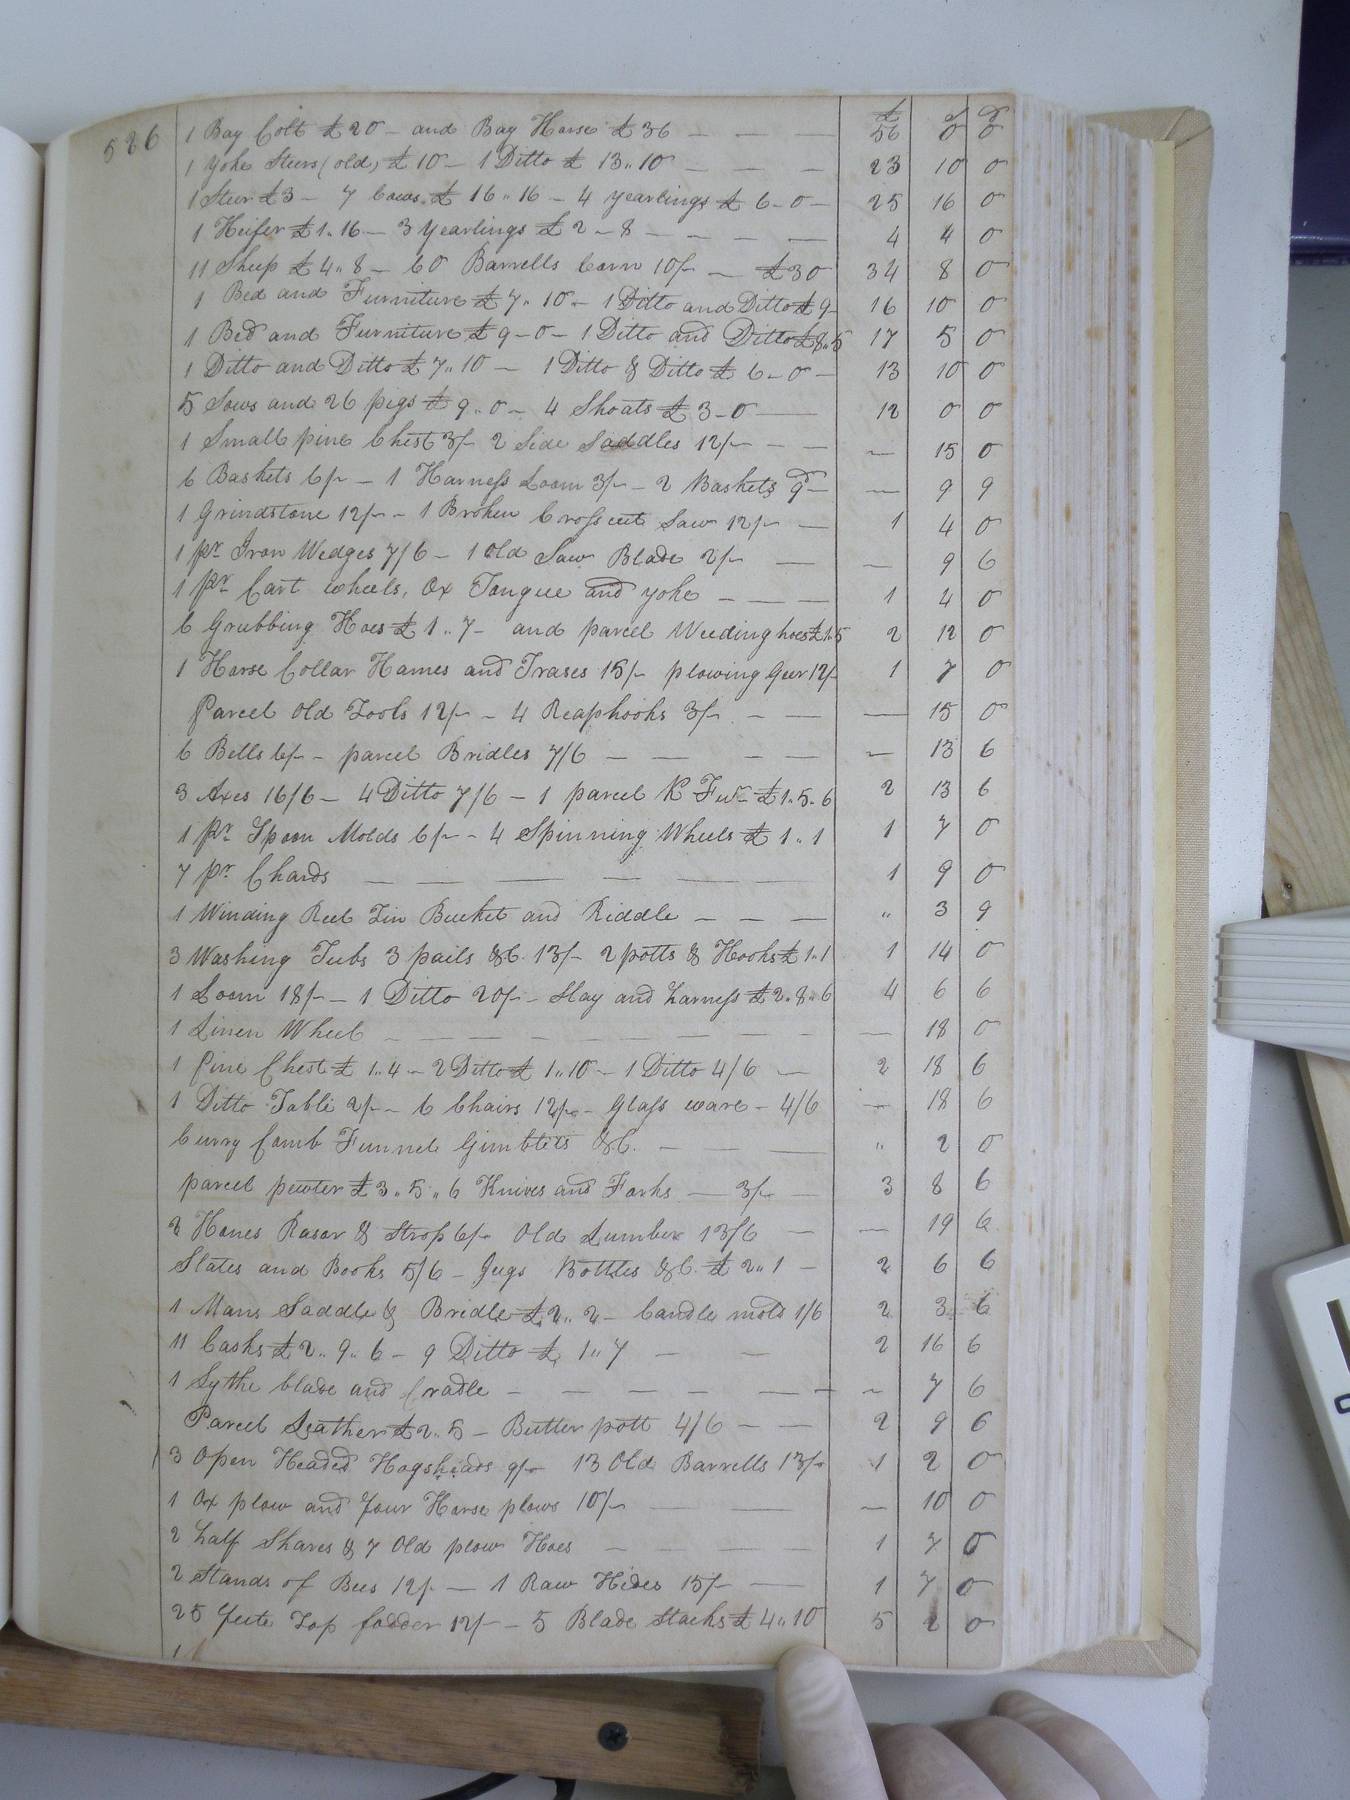 526
£ s d
1 Bay Colt £20 – and Bay Horse £36 – – – 56 0 0
1 Yoke Steers (old) £10 – 1 Ditto £13..10 – – – 23 10 0
1 Steer £3 – 7 Cows £16..16 – 4 yearlings £6–0– 25 16 0
1 Heifer £1.16 – 3 yearlings £2–8 – – – – 4 4 0
11 Sheep £4..8 – 60 Barrells Corn 10/– – £30 34 8 0
1 Bed and Furniture £7..10 – 1 Ditto and Ditto £9– 16 10 0
1 Bed and Furniture £9–0– 1 Ditto and Ditto £8..5 17 5 0
1 Ditto and Ditto £7..10 – 1 Ditto & Ditto £6–0– 13 10 0
5 Sows and 26 pigs £9..0 – 4 Shoats £3–0 — 12 0 0
1 Small pine Chest 3/– 2 Side Saddles 12/– – – — 15 0
6 Baskets 6/– – 1 Harness Loom 3/– – 2 Baskets 9d – — 9 9
1 Grindstone 12/– – 1 Broken Cross cut Saw 12/– — 1 4 0
1 pr Iron Wedges 7/6 – 1 Old Saw Blade 2/– — — 9 6
1 pr Cart wheels, Ox Tongue and yoke – — — 1 4 0
6 Grubbing Hoes £1..7 – and parcel Weeding hoes £1.5 2 12 0
1 Horse Collar Hames and Trases 15/– plowing Geer 12/– 1 7 0
Parcel Old Tools 12/– – 4 Reaphooks 3/– – — — 15 0
6 Bells 6/– – parcel Bridles 7/6 – — – — — 13 6
3 Axes 16/6 – 4 Ditto 7/6 – 1 parcel K Fur £1.5.6 2 13 6
1 pr Spoon Molds 6/– – 4 Spinning Wheels £1..1 1 7 0
7 pr Chards — — — — — — 1 9 0
1 Winding Reel Tin Bucket and Riddle – – — .. 3 9
3 Washing Tubs 3 pails &C. 13/– 2 potts & Hooks £1.1 1 14 0
1 Loom 18/– – 1 Ditto 20/– – Slay and harness £2.8.6 4 6 6
1 Linen Wheel – — — – — — — — – — 18 0
1 Pine Chest £1..4 – 2 Ditto £1..10 – 1 Ditto 4/6 — 2 18 6
1 Ditto Table 2/– – 6 Chairs 12/– – Glass ware – 4/6 — 18 6
Curry Comb Funnel Gimblets &C. – — — .. 2 0
parcel pewter £3..5..6 Knives and Forks — 3/– – 3 8 6
2 Hones Rasor & Strop 6/– Old Lumber 13/6 — — 19 6
Slates and Books 5/6 – Jugs Bottles &C. £2..1 – 2 6 6
1 Mans Saddle & Bridle £2..2 – Candle mold 1/6 2 3 6
11 Casks £2..9..6 – 9 Ditto £1..7 — — 2 16 6
1 Sythe blade and Cradle – — — — — – 7 6
Parcel Leather £2..5 – Butter pott 4/6 – — 2 9 6
3 Open Headed Hogsheads 9/– 13 Old Barrells 13/– 1 2 0
1 Ox plow and four Horse plows 10/– — — — 10 0
2 half Shares & 7 Old plow Hoes — — — — 1 7 0
2 Stands of Bees 12/– — 1 Raw Hides 15/– — 1 7 0
25 feete Top fodder 12/– – 5 Blade Stacks £4..10 5 2 0